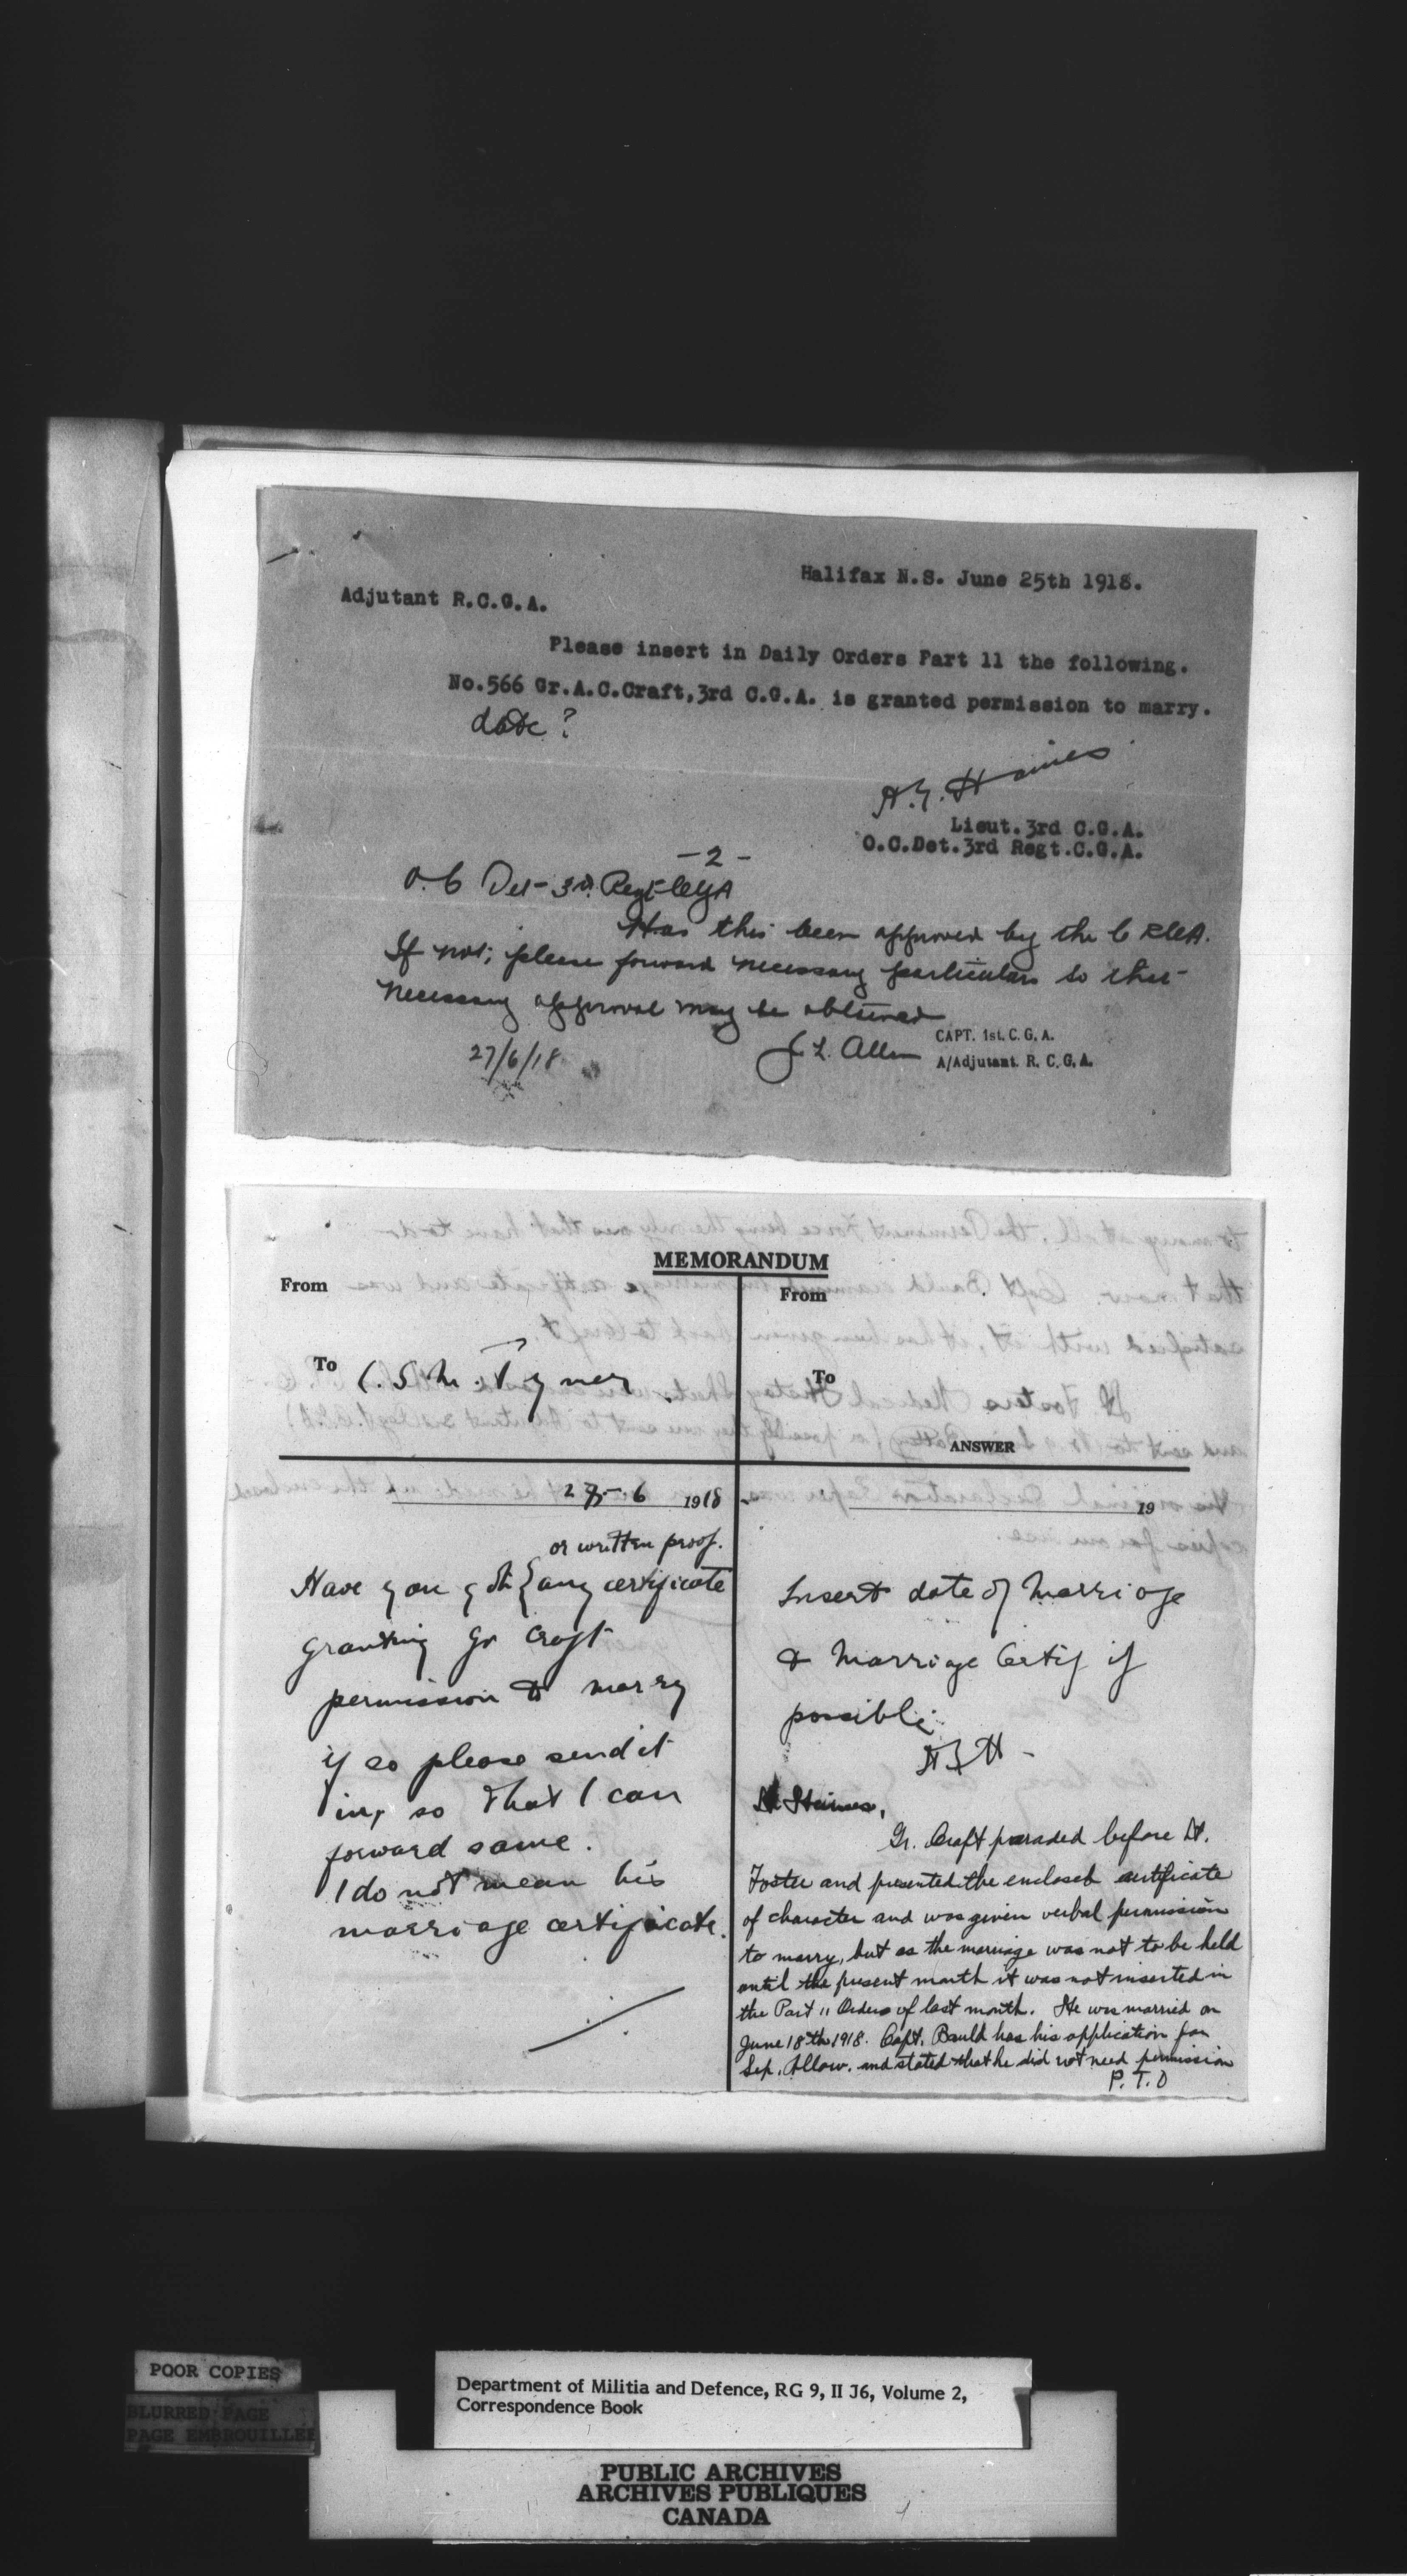 Halifax N.S. June 25th 1918.
Adjutant R.C.G.A.
Please insert in Daily Orders Part 11 the following.
No.566 Gr.A.C.Craft,3rd C.G.A. is granted permission to marry.
date ?
Haines
Lieut.3rd C.G.A.
O.C.Det.3rd Regt.C.G.A.
-2-
O.C Det- 3rd. Regt- CGA
Has this been approved by the C RCA.
If not; please forward necessary particulars so that
necessary approval may be obtained
27/6/18
J L. Allen
CAPT. 1st. C. G. A.
A/Adjutant. R. C. G. A.
MEMORANDUM
From
To C. S. M. Tyner.
27-6 1918
or written proof.
Have you got { any certificate
granting Gr Craft
permission to marry
if so please send it
in, so that I can
forward same.
I do not mean his
marriage certificate.
From
To
ANSWER
19
Insert date of Marriage
& Marriage Certif if
possible
Lt Haines,
Gr. Craft paraded before Lt.
Foster and presented the enclosed certificate
of character and was given verbal permission
to marry, but as the marriage was not to be held
until the present month it was not inserted in
the Part 11 Orders of last month. He was married on
June 18th 1918. Capt. Bauld has his application for
Sep. Allow. and stated that he did not need permission
P.T.O
POOR COPIES
BLURRED PAGE
PAGE EMBROUILLEE
Department of Militia and Defence, RG 9, II J6, Volume 2,
Correspondence Book
PUBLIC ARCHIVES
ARCHIVES PUBLIQUES
CANADA